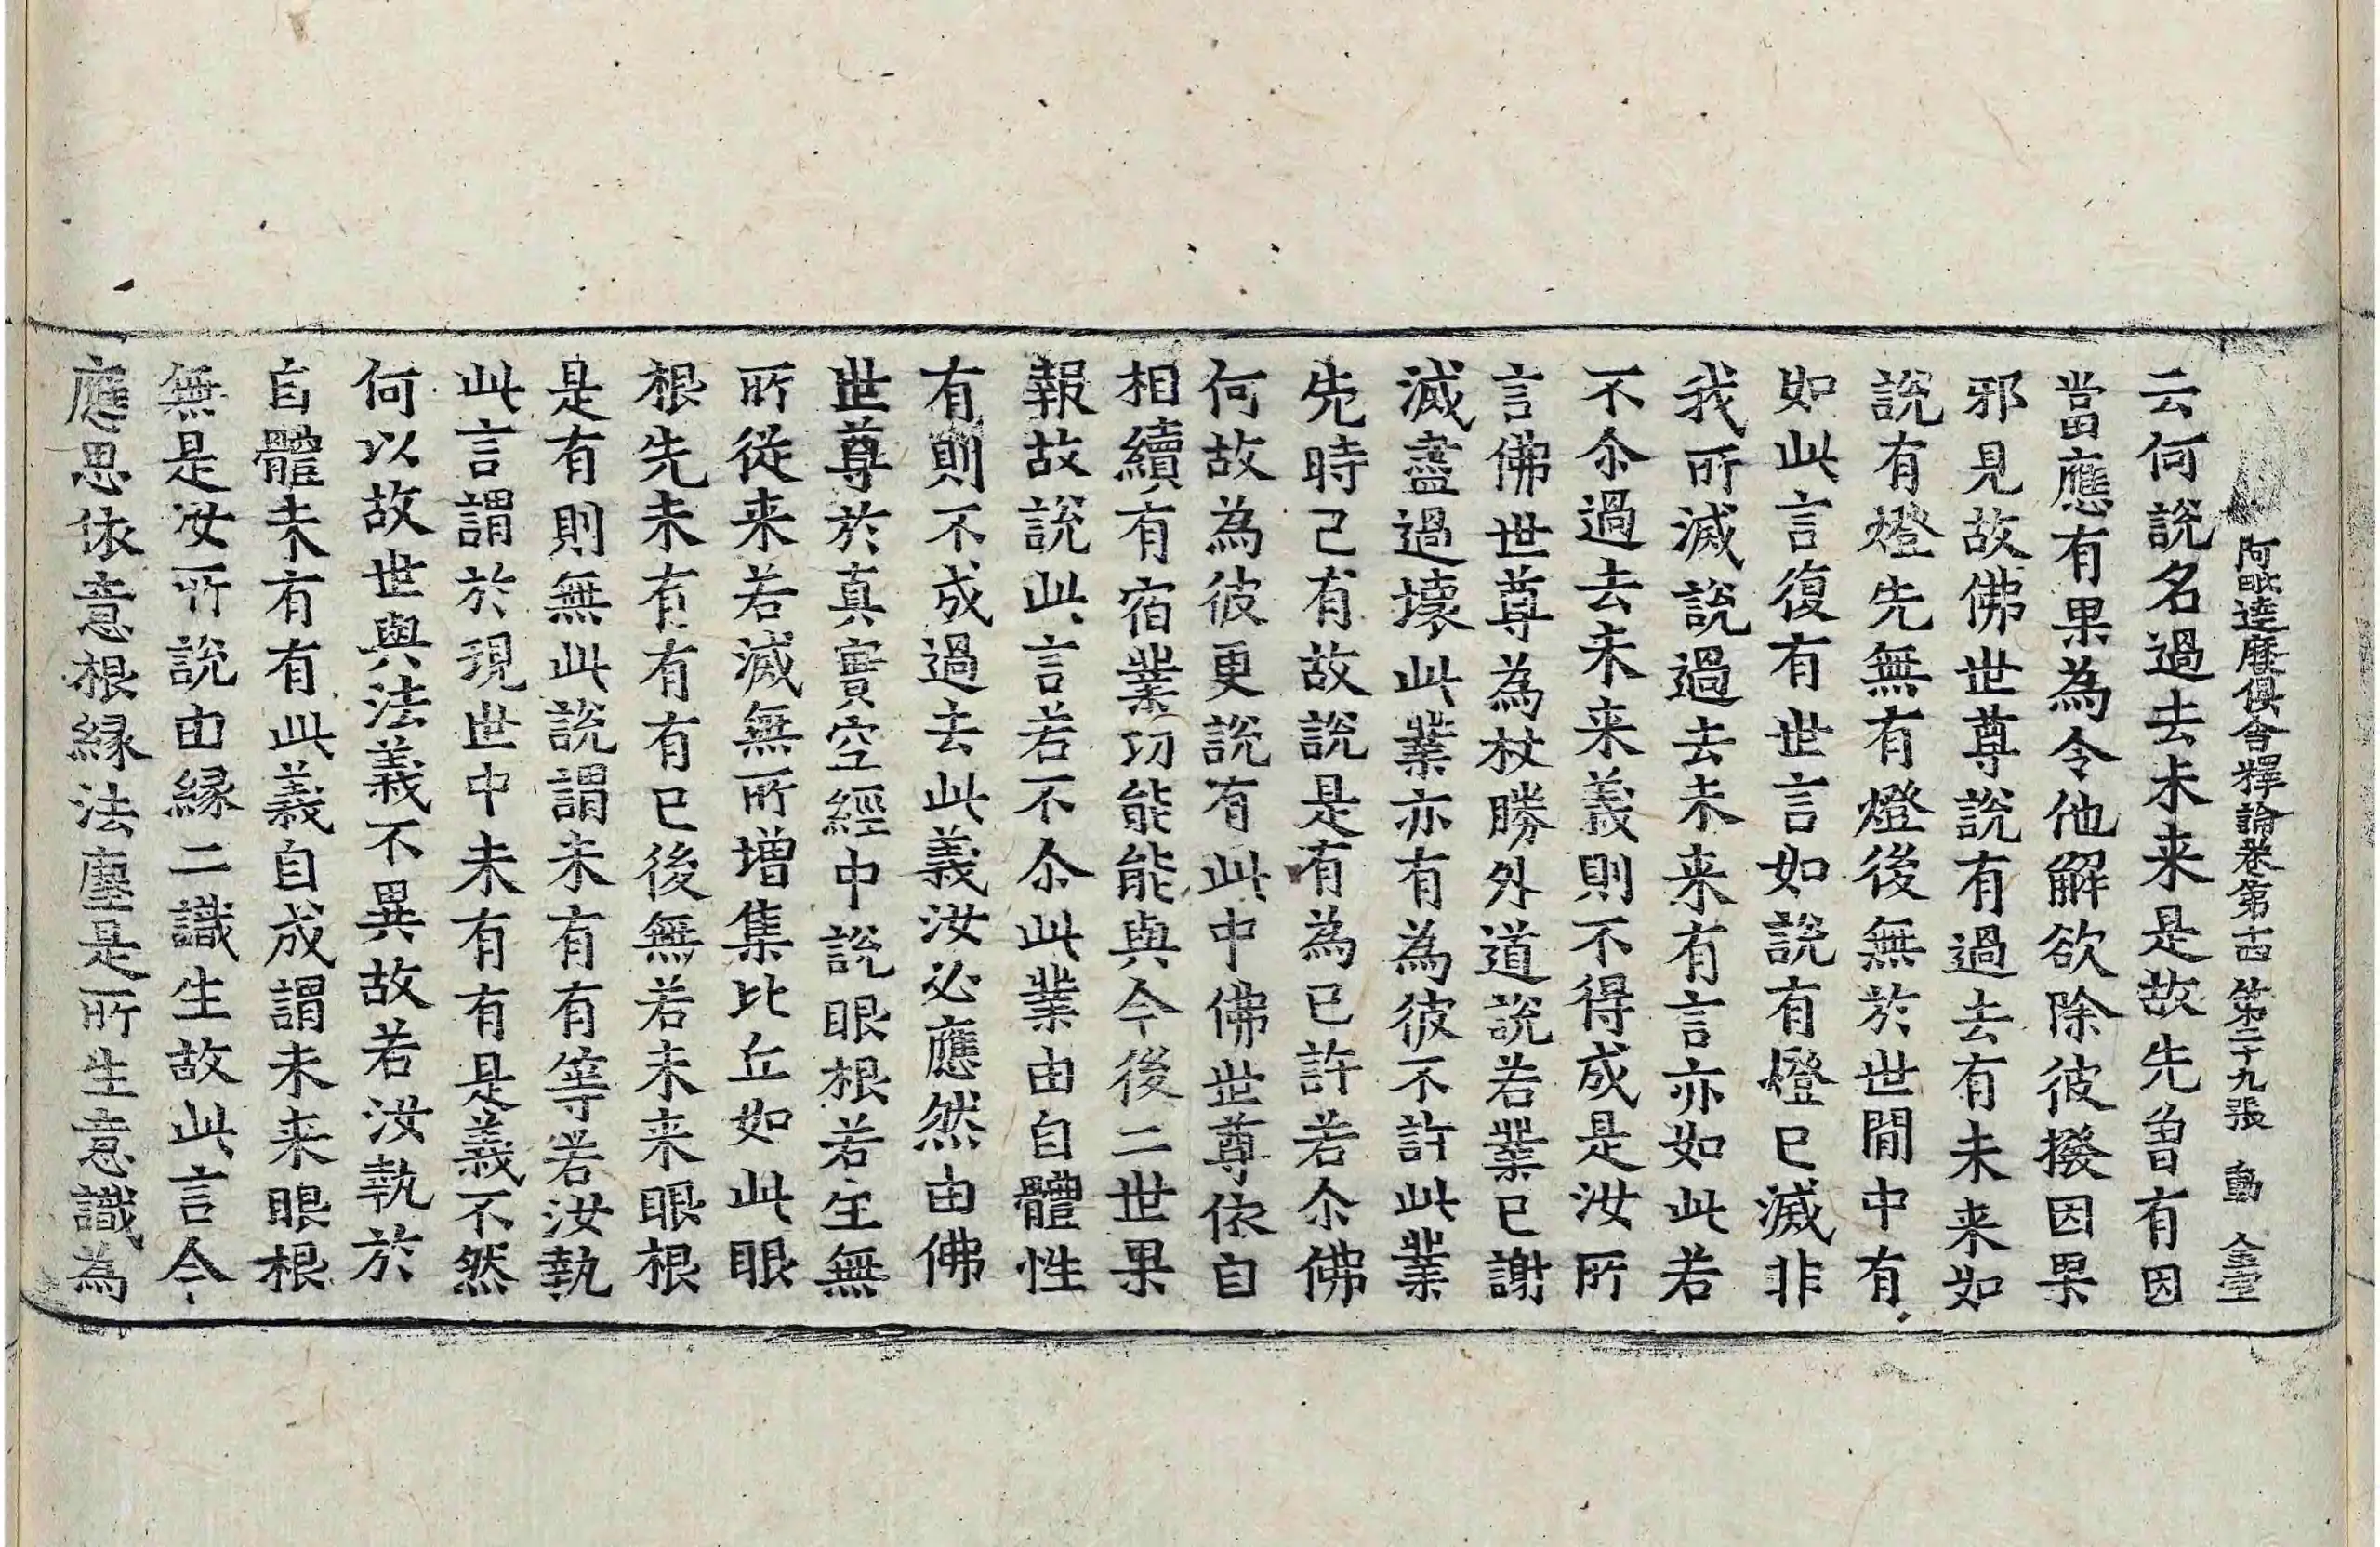 阿毗達磨俱舍釋論卷第十四 第二十九張 動 金堂
云何說名過去未来是故先曾有因
當應有果為令他解欲除彼撥因果
邪見故佛世尊說有過去有未来如
說有燈先無有燈後無於世閒中有
如此言復有世言如說有燈已滅非
我所滅說過去未来有言亦如此若
不尒過去未来義則不得成是汝所
言佛世尊為杖勝外道說若業已謝
滅盡過壞此業亦有為彼不許此業
先時已有故說是有為已許若尒佛
何故為彼更說有此中佛世尊依自
相續有宿業功能能與今後二世果
報故說此言若不尒此業由自體性
有則不成過去此義汝必應然由佛
世尊於真實空經中說眼根若生無
所從来若滅無所增集比丘如此眼
根先未有有有已後無若未来眼根
是有則無此說謂未有有等若汝執
此言謂於現世中未有有是義不然
何以故世與法義不異故若汝執於
自體未有有此義自成謂未来眼根
無是汝所說由緣二識生故此言今
應思依意根緣法塵是所生意識為